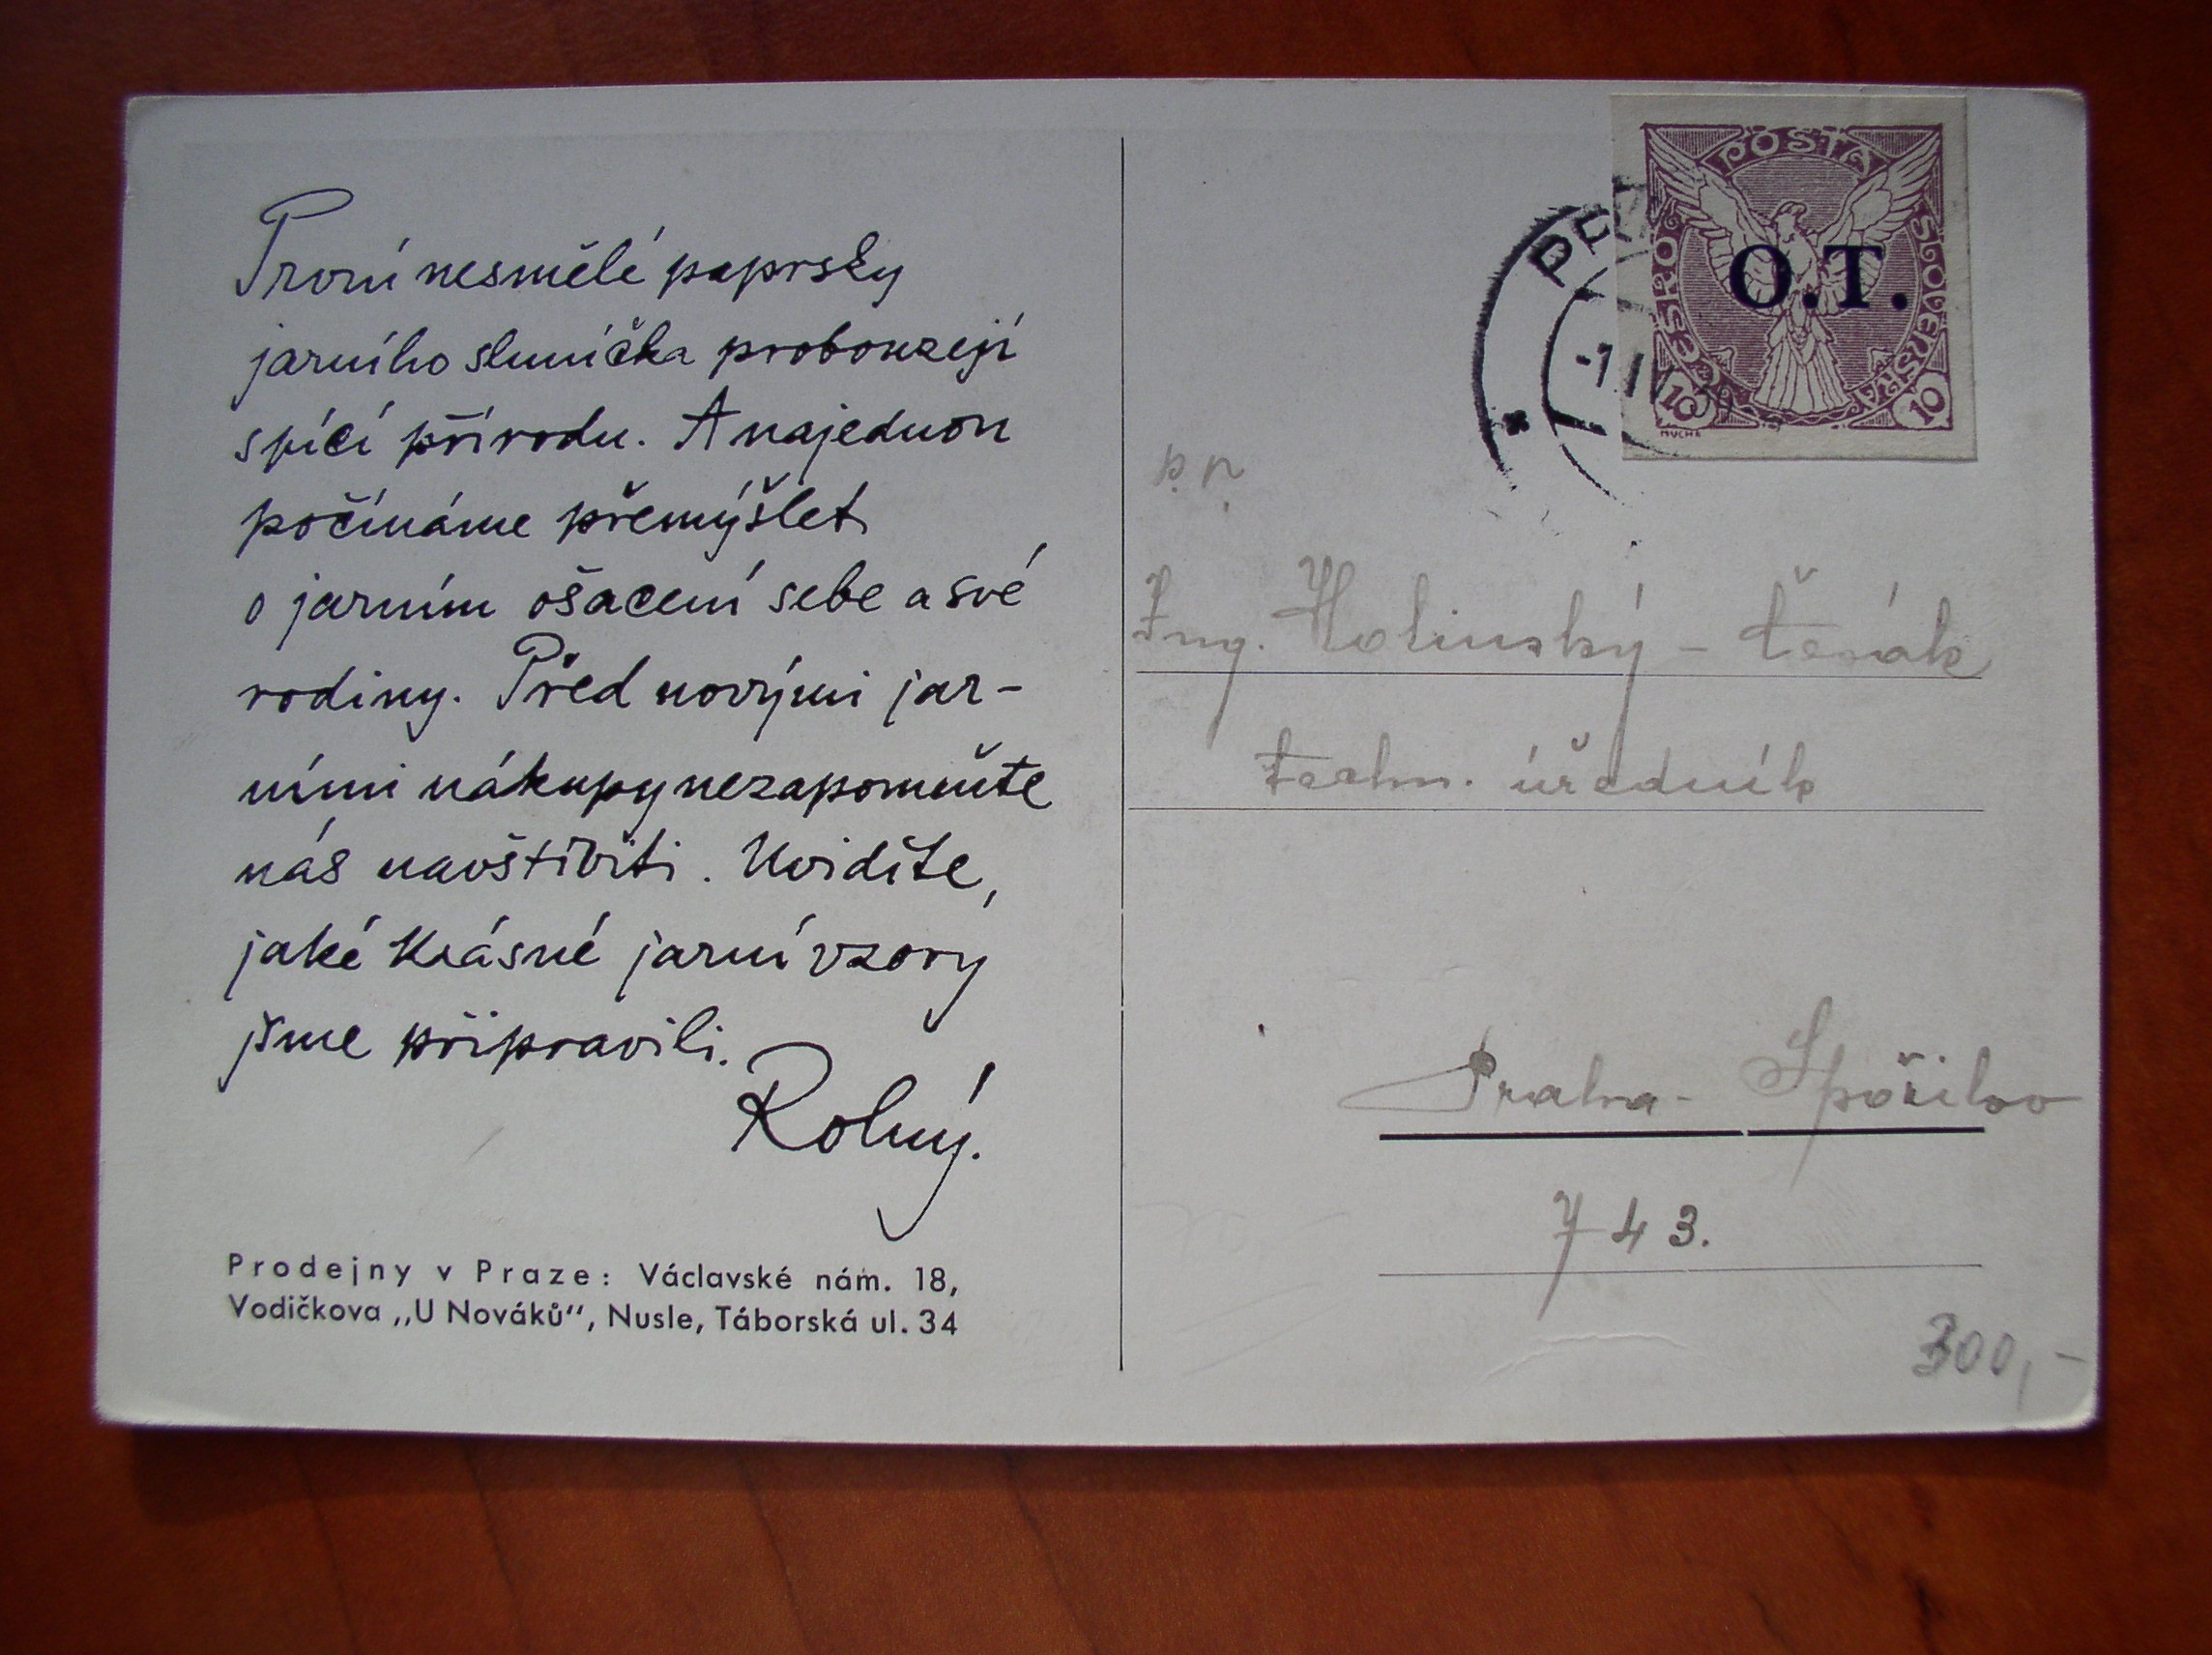 První nesmělé paprsky
jarního sluníčka probouzejí
spící přírodu. A najednou
počínáme přemýšlet
o jarním ošacení sebe a své
rodiny. Před novými jar-
ními nákupy nezapomeňte
nás navštíviti. Uvidíte,
jaké krásné jarní vzory
jsme připravili.
Rolný.
Prodejny v Praze: Václavské nám. 18,
Vodičkova „U Nováků“, Nusle, Táborská ul. 34
POŠTA
ČESKO SLOVENSKÁ
O.T.
10 10
MUCHA
-1. IV
p. n.
Ing. Holinský -
techn. úředník
Praha - Spořilov
743.
300,-